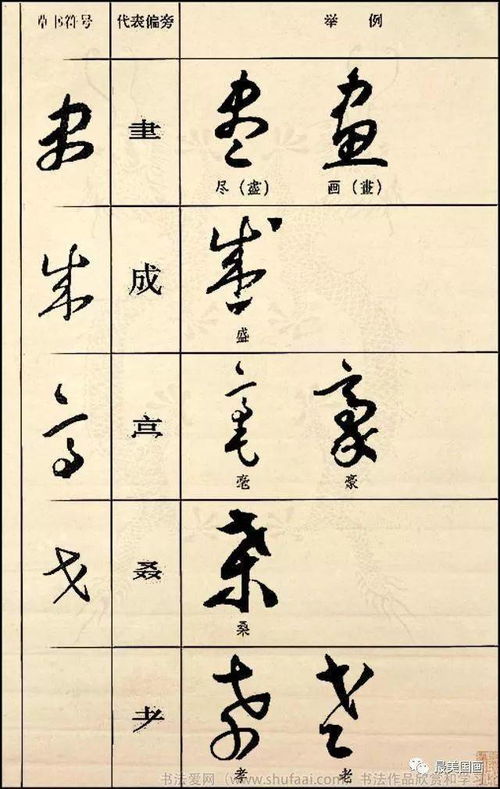 草书符号 代表偏旁 举例
聿 尽（盡） 画（畫）
成 盛
毫 豪
叒 桑
耂 孝 老
最美国画
书法爱网（www.shufaai.com）书法作品欣赏和学习